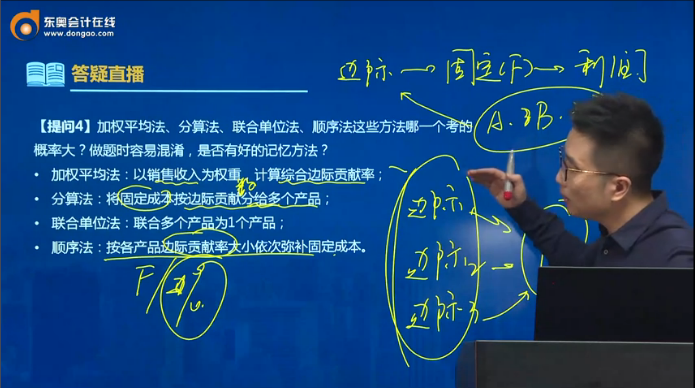 东奥会计在线
www.dongao.com
答疑直播
【提问4】加权平均法、分算法、联合单位法、顺序法这些方法哪一个考的
概率大？做题时容易混淆，是否有好的记忆方法？
• 加权平均法：以销售收入为权重，计算综合边际贡献率；
• 分算法：将固定成本按边际贡献分给多个产品；
• 联合单位法：联合多个产品为1个产品；
• 顺序法：按各产品边际贡献率大小依次弥补固定成本。
边际 → 固定(F) → 利润
A. B.
边际1
边际2
边际3
F